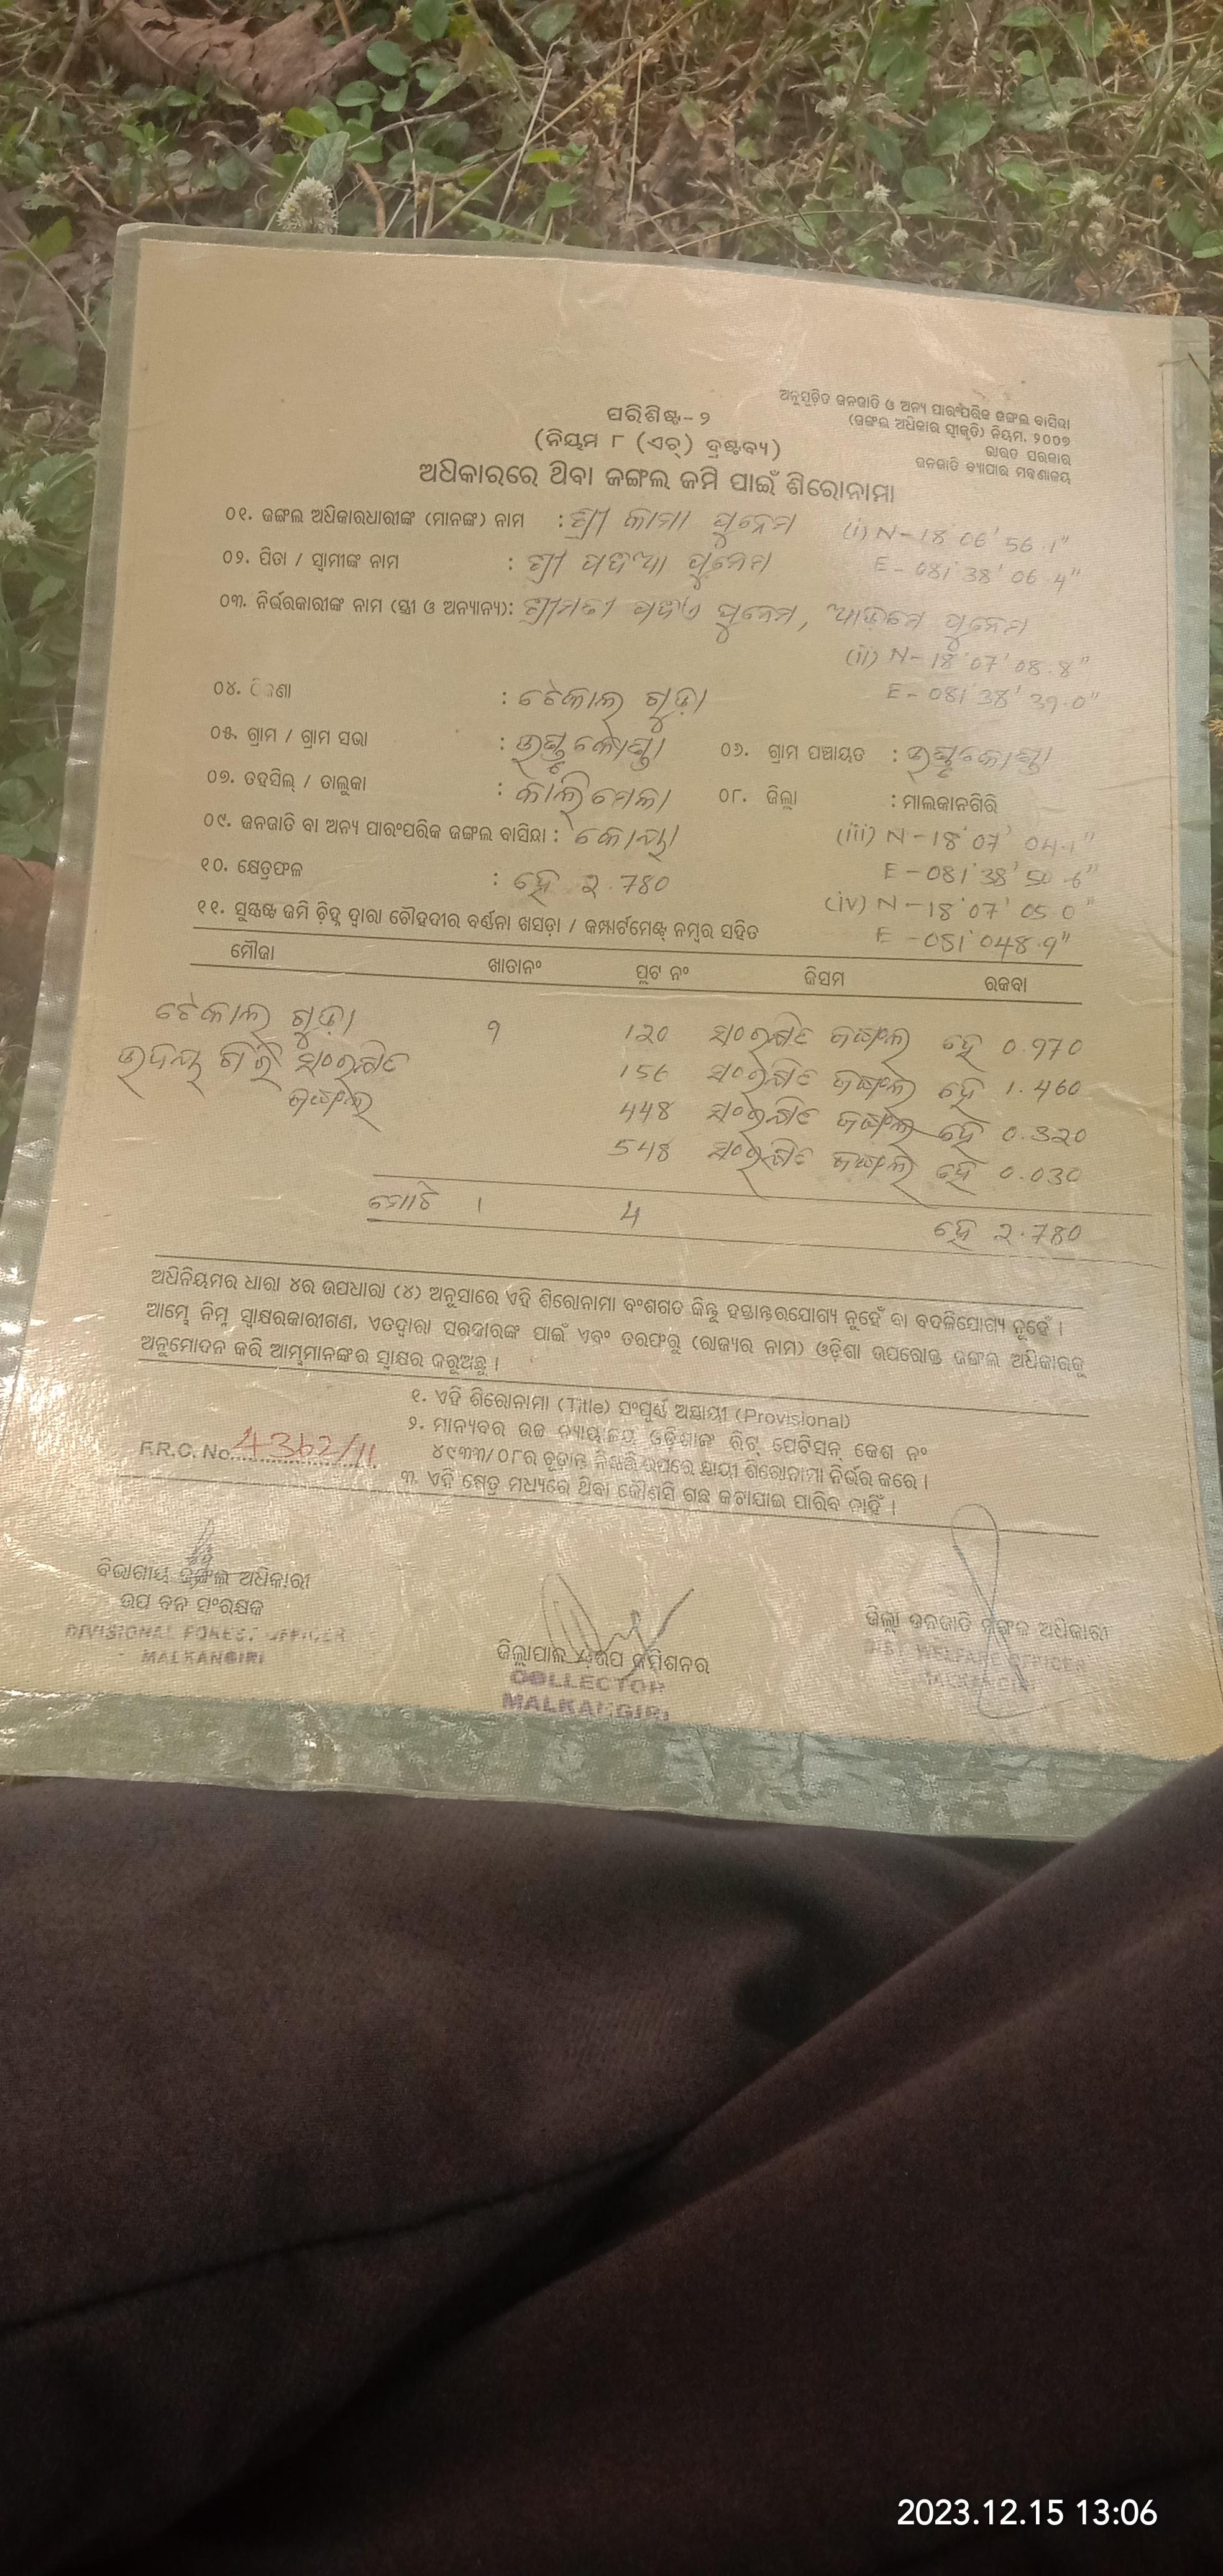 ଅନୁସୂଚିତ ଜନଜାତି ଓ ଅନ୍ୟ ପାରଂପରିକ ଜଙ୍ଗଲ ବାସିନ୍ଦା
(ଜଙ୍ଗଲ ଅଧିକାର ସ୍ୱୀକୃତି) ନିୟମ, ୨୦୦୭
ଭାରତ ସରକାର
ଜନଜାତି ବ୍ୟାପାର ମନ୍ତ୍ରଣାଳୟ
ପରିଶିଷ୍ଟ- ୨
(ନିୟମ ୮ (ଏଚ୍) ଦ୍ରଷ୍ଟବ୍ୟ)
ଅଧିକାରରେ ଥିବା ଜଙ୍ଗଲ ଜମି ପାଇଁ ଶିରୋନାମା
୦୧. ଜଙ୍ଗଲ ଅଧିକାରଧାରୀଙ୍କ (ମାନଙ୍କ) ନାମ : ଶ୍ରୀ କାମା ପୁନେମ (i) N-18°06'56.1"
E-081°38'06.4"
୦୨. ପିତା / ସ୍ୱାମୀଙ୍କ ନାମ : ଶ୍ରୀ ପୁନେମ
୦୩. ନିର୍ଭରକାରୀଙ୍କ ନାମ (ସ୍ତ୍ରୀ ଓ ଅନ୍ୟାନ୍ୟ): ଶ୍ରୀମତୀ ପୁନେମ, ପୁନେମ
(ii) N-18°07'08.8"
E-081°38'39.0"
୦୪. ଠିକଣା : ଟେକାଲ ଗୁଡ଼ା
୦୫. ଗ୍ରାମ / ଗ୍ରାମ ସଭା :
୦୬. ଗ୍ରାମ ପଞ୍ଚାୟତ :
୦୭. ତହସିଲ୍ / ତାଲୁକା : କାଲିମେଳା
୦୮. ଜିଲ୍ଲା : ମାଲକାନଗିରି
୦୯. ଜନଜାତି ବା ଅନ୍ୟ ପାରଂପରିକ ଜଙ୍ଗଲ ବାସିନ୍ଦା : କୋୟା (iii) N-18°07'04.1"
E-081°38'50.6"
୧୦. କ୍ଷେତ୍ରଫଳ : ହେ 2.780 (iv) N-18°07'05.0"
E-081°048.9"
୧୧. ସୁସ୍ପଷ୍ଟ ଜମି ଚିହ୍ନ ଦ୍ୱାରା ଚୌହଦୀର ବର୍ଣ୍ଣନା ଖସଡ଼ା / କମ୍ପାର୍ଟମେଣ୍ଟ୍ ନମ୍ବର ସହିତ
ମୌଜା ଖାତାନଂ ପ୍ଲଟ ନଂ କିସମ ରକବା
ଟେକାଲ ଗୁଡ଼ା ୨ 120 ସଂରକ୍ଷିତ ଜଙ୍ଗଲ ହେ 0.970
ଉଦୟ ଗିରି ସଂରକ୍ଷିତ 156 ସଂରକ୍ଷିତ ଜଙ୍ଗଲ ହେ 1.460
ଜଙ୍ଗଲ 448 ସଂରକ୍ଷିତ ଜଙ୍ଗଲ ହେ 0.320
548 ସଂରକ୍ଷିତ ଜଙ୍ଗଲ ହେ 0.030
ମୋଟ 1 4 ହେ 2.780
ଅଧିନିୟମର ଧାରା ୪ର ଉପଧାରା (୪) ଅନୁସାରେ ଏହି ଶିରୋନାମା ବଂଶଗତ କିନ୍ତୁ ହସ୍ତାନ୍ତରଯୋଗ୍ୟ ନୁହେଁ ବା ବଦଳିଯୋଗ୍ୟ ନୁହେଁ ।
ଆମ୍ଭେ ନିମ୍ନ ସ୍ୱାକ୍ଷରକାରୀଗଣ, ଏତଦ୍ୱାରା ସରକାରଙ୍କ ପାଇଁ ଏବଂ ତରଫରୁ (ରାଜ୍ୟର ନାମ) ଓଡ଼ିଶା ଉପରୋକ୍ତ ଜଙ୍ଗଲ ଅଧିକାରକୁ
ଅନୁମୋଦନ କରି ଆମ୍ଭମାନଙ୍କର ସ୍ୱାକ୍ଷର କରୁଅଛୁ ।
୧. ଏହି ଶିରୋନାମା (Title) ସଂପୂର୍ଣ୍ଣ ଅସ୍ଥାୟୀ (Provisional)
୨. ମାନ୍ୟବର ଉଚ୍ଚ ନ୍ୟାୟାଳୟ ଓଡ଼ିଶାଙ୍କ ରିଟ୍ ପେଟିସନ୍ କେଶ ନଂ
୪୯୩୩/୦୮ର ଚୂଡ଼ାନ୍ତ ନିଷ୍ପତ୍ତି ଉପରେ ସ୍ଥାୟୀ ଶିରୋନାମା ନିର୍ଭର କରେ ।
୩. ଏହି କ୍ଷେତ୍ର ମଧ୍ୟରେ ଥିବା କୌଣସି ଗଛ କଟାଯାଇ ପାରିବ ନାହିଁ ।
F.R.C. No. 4362/11
ବିଭାଗୀୟ ଜଙ୍ଗଲ ଅଧିକାରୀ
ଉପ ବନ ସଂରକ୍ଷକ
DIVISIONAL FOREST OFFICER
MALKANGIRI
ଜିଲ୍ଲାପାଳ ଓ ଉପ କମିଶନର
COLLECTOR
MALKANGIRI
ଜିଲ୍ଲା ଜନଜାତି ମଙ୍ଗଳ ଅଧିକାରୀ
DIST. WELFARE OFFICER
MALKANGIRI
2023.12.15 13:06